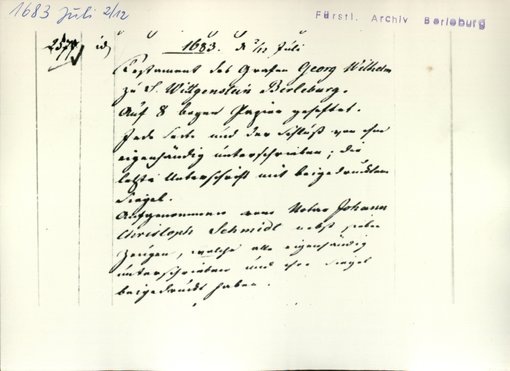 1683 Juli 2/12
Fürstl. Archiv Berleburg
id,
1683. d. 2/12 Juli
Testament des Grafen Georg Wilhelm
zu S. Wittgenstein Berleburg.
Auf 8 bogen Papier geheftet.
Jede Seite und der Schluß von ihm
eigenhändig unterschrieben; die
letzte Unterschrift mit beigedrucktem
Siegel.
Aufgenommen vom Notar Johann
Christoph Schmidl nebst sieben
Zeugen, welche alle eigenhändig
unterschrieben und ihre Siegel
beigedruckt haben.